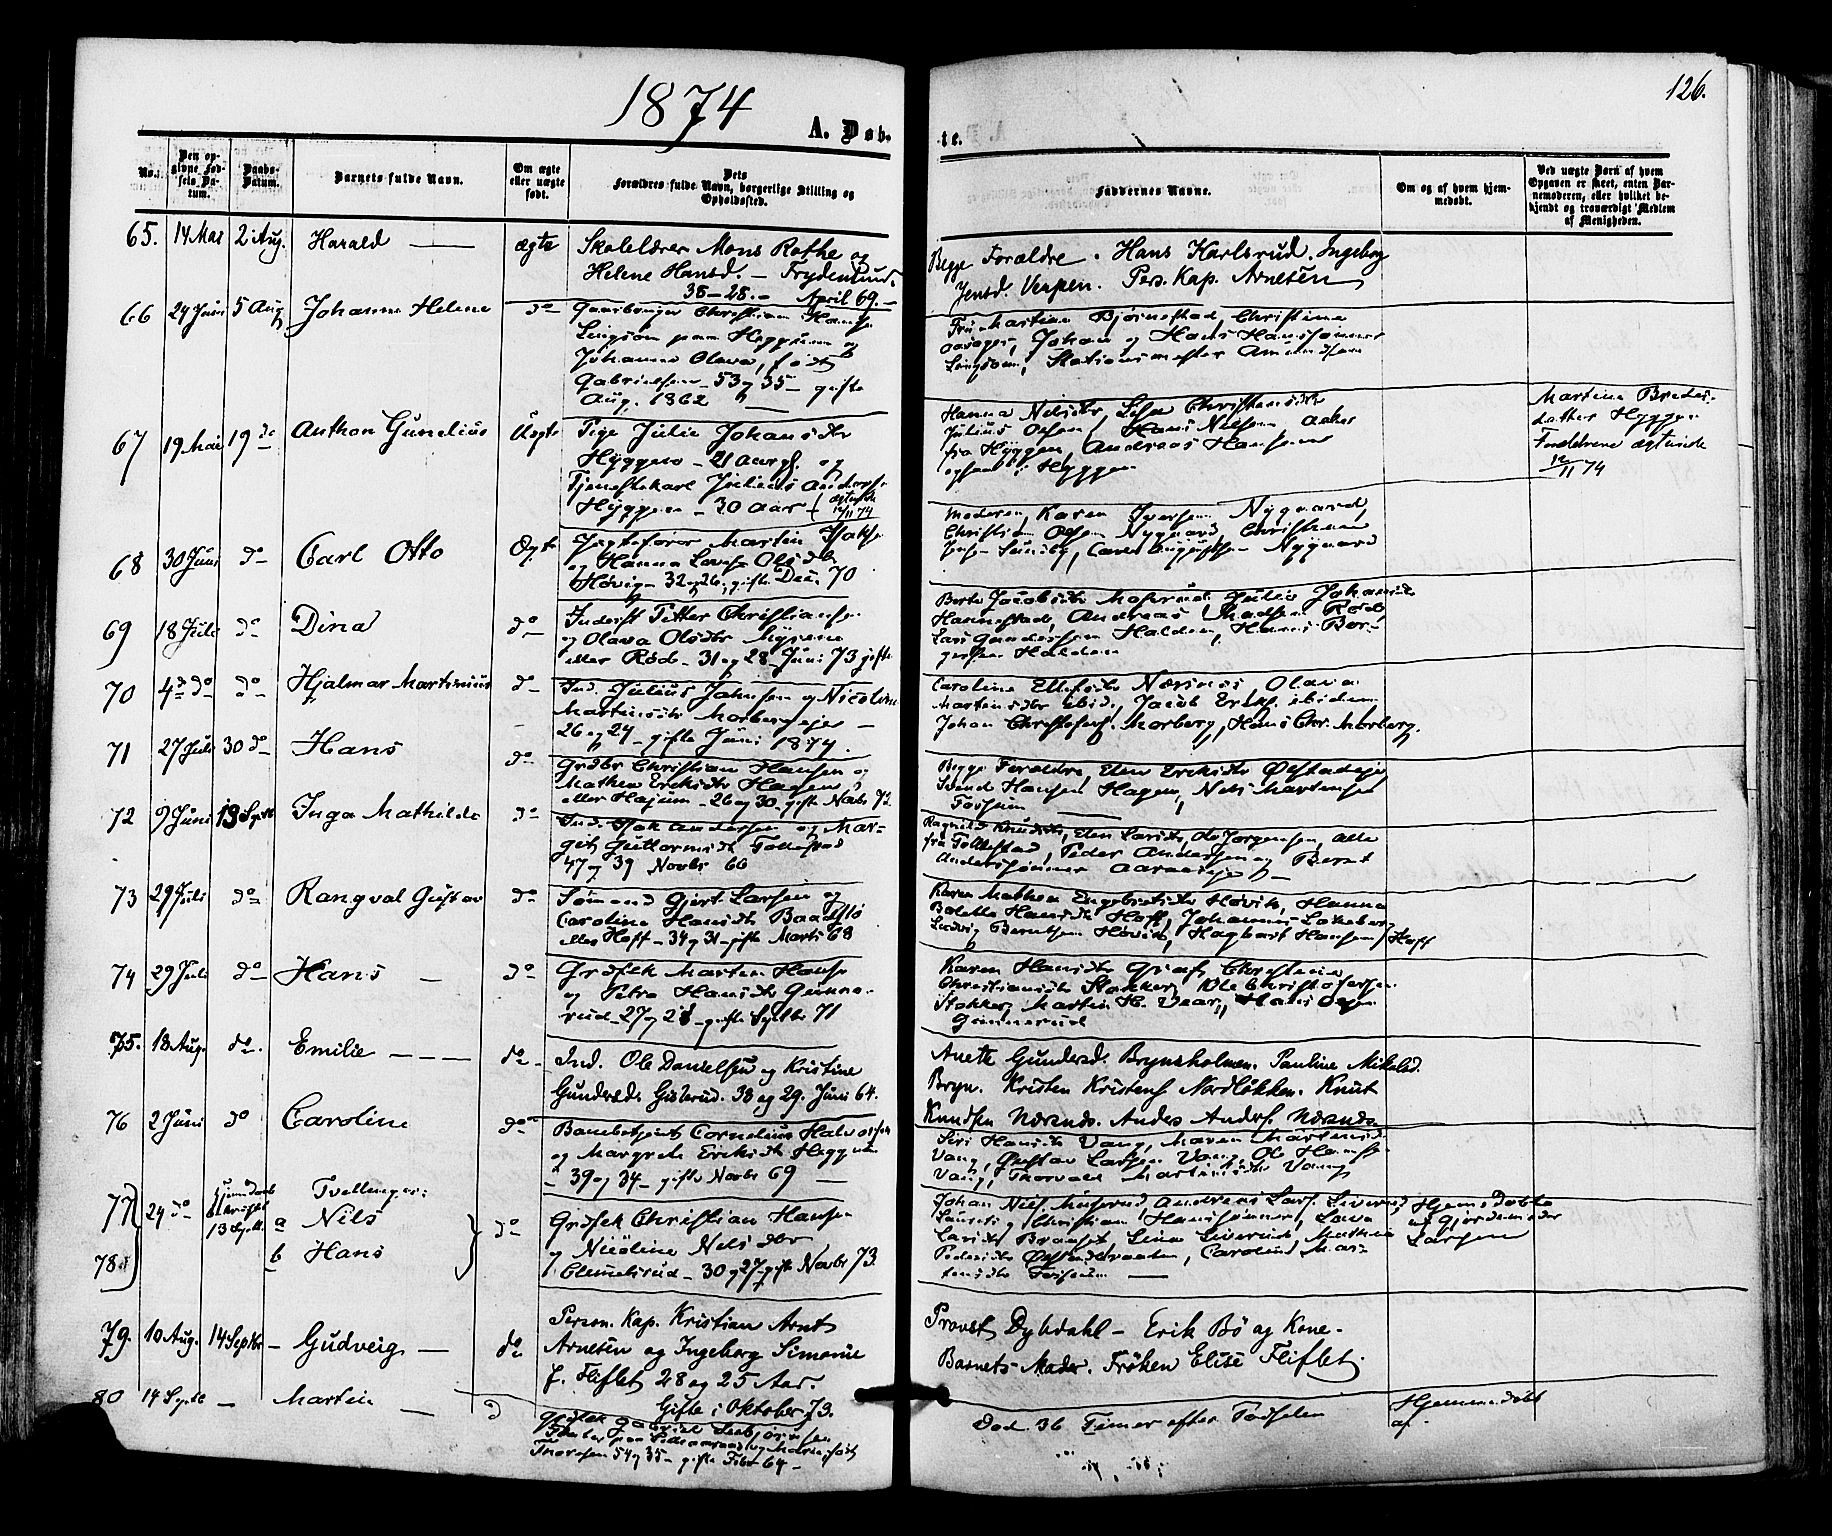 1874
126.
A. Døb-
te.
No.
Den opgivne Fødsels Datum.
Daabs-Datum.
Barnets fulde Navn.
Om ægte eller uægte født.
Dets Forældres fulde Navn, borgerlige Stilling og Opholdssted.
Faddernes Navne.
Om og af hvem hjemmedøbt.
Ved uægte Børn af hvem Opgaven er skeet, enten Barnemoderen, eller hvilket bekjendt og troværdigt Medlem af Menigheden.
65. 14 Mai 2 Aug. Harald — ægte
Skolelærer Mons Rothe og
Helene Hansd. — Frydenlund.
38-28.- April 69.-
Begge Forældre. Hans Karlsrud. Ingeborg
Jensd. Verpen. Pers. Kap. Arnesen
66 24 Juni 5 Aug Johanne Helene do
Gaardbruger Christian Hanse
Lingsom paa Heggum og
Johanne Olava, født
Gabrielsen - 53 og 35 - gifte
Aug. 1862
Fru Martine Bjørnestad, Christine
Johan og Hans Hanssønner
Lingsom, Stationsmester Amundsen
67 19 Mai 19 do Anthon Gunelius Uægte
Pige Julie Johansdtr
Hyggen - 21 Aar gl. og
Tjenestekarl Julius Anderse
Hyggen - 30 Aar
12/11 74
Hanna Nelsdtr, Lise Christensdtr
Julius Olsen, Hans Nelsen, Aaker
fra Hyggen, Andreas Hansen
i Hyggen
Martine Bredes-
datter Hyggen
Forældrene ægtevide
12/11 74
68 30 Juni do Carl Otto Ægte
Martin Isakse
og Hanna Lovise Olsdtr
Høvig - 32 og 26, gifte Dec. 70
Moderen, Karen Iversen Nygaard,
Christian Olsen Nygaard Christian
Sundby, Carl Augustsen Nygaard
69 18 Juli do Dina do
Inderst Petter Christianse
og Olava Olsdtr Myrene
eller Rød - 31 og 28 - Juni 73 gifte
Berte Jacobsdtr Julie Johansdtr
Hannestad, Andreas Madsen Rød,
Lars Gundersen Halden, Hans Bor-
gersen Halden
70 4de do do Hjalmar Martinius do
Ind. Julius Johnsen og Nicoline
Martinsdtr Morbergeje -
26 og 24 - gifte Juni 1874.
Caroline Ellefsdtr Nærsnes Olava
Martinsdtr ibid, Jacob Eriks. ibidem,
Johan Christofers. Morberg, Hans Chr. Morberg.
71 27 Juli 30 do Hans do
Grdbr Christian Hansen og
Mathea Eriksdtr Hagen,
eller Hajum - 26 og 30 - gifte Novbr 72.
Begge Forældre, Elen Eriksdtr Ølstadeje
Svend Hansen Hagen, Nels Martensen
Torsrum
72 9 Juni 13 Septb Inga Mathilde do
Ind. Isak Andersen og Mar-
git Guttormsdtr Follestad
47 og 39 Novbr 60
Ragnild Knudsdtr, Elen Larsdtr, Ole Jørgensen, alle
fra Follestad, Peder Andersen og Bernt
Anderssønner
73 29 Juli do Rangval Gustav do
Sømand Gjert Larsen og
Caroline Hansdtr Baadstø
eller Hoff - 34 og 31 - gifte Marts 68
Karen Mathea Engebretsdtr Høvik, Hanna
Bolette Hansdtr Hoff, Johannes Lakeberg
Ludvig Berntsen Høvik, Hagbart Hansen Hoff
74 29 Juli do Hans — do
Grdsek Marten Hanse
og Petra Hansdtr Gunne-
rud - 27 og 28 - gifte Septbr 71
Karen Hansdtr Graff, Christine
Christiansdtr Stokker, Ole Christofersen
Stokker, Martin H. Vear, Hans Olsen
Gunnerud
75. 18 Aug. do. Emilie — — — do
Ind. Ole Danielsen og Kristine
Gundersd. Gisterud. 38 og 29. Juni 64.
Anette Gundersd. Brynsholmen. Pauline Mikelsd.
Bryn. Kristen Kristens Nordløkken. Knut
Knudsen Nærsnds. Andes Anders. Nærsnds.
76 2 Juni do Caroline do
Banebetjent Cornelius Halvorsen
og Margrete Eriksdtr Heggum
- 39 og 34 - gifte Novbr 69
Siri Hansdtr Vang, Maren Martensd
Vang, Gustav Larsen Vang, Ole Hanse
Vang, Thorvald Martinsdtr Vang
77 24 do 13 Septb. Tvillinger:
a Nils
78 b Hans do
Grdsek Christian Hanse
og Nicoline Nelsdtr
Clemetsrud - 30 og 27 - gifte Novbr 73.
Johan Nels. Muserud, Andreas Lars. Liverud
Laurits og Christian Hanssønner, Lava
Larsdtr Braaset, Lina Liverud, Mathea
Pedersdtr Caroline Mar-
tensdtr
Hjemmedøbte
af Gjordemoder
Larsen
79. 10 Aug. 14 Septbr — Gudveig — do
Person. Kap. Kristian Arnt
Arnesen og Ingeborg Simonie
f. Fliflet 28 og 25 Aar.
Gifte i Oktober 73.
Provst Dybdahl - Erik Bø og Kone -
Barnets Moder. Frøken Elise Fliflet.
80 14 Septb — Martin —
Thoresen 54 og 35 - gifte Febr 64 -
Død 36 Timer efter Fødselen
Hjemmedøbt
af.